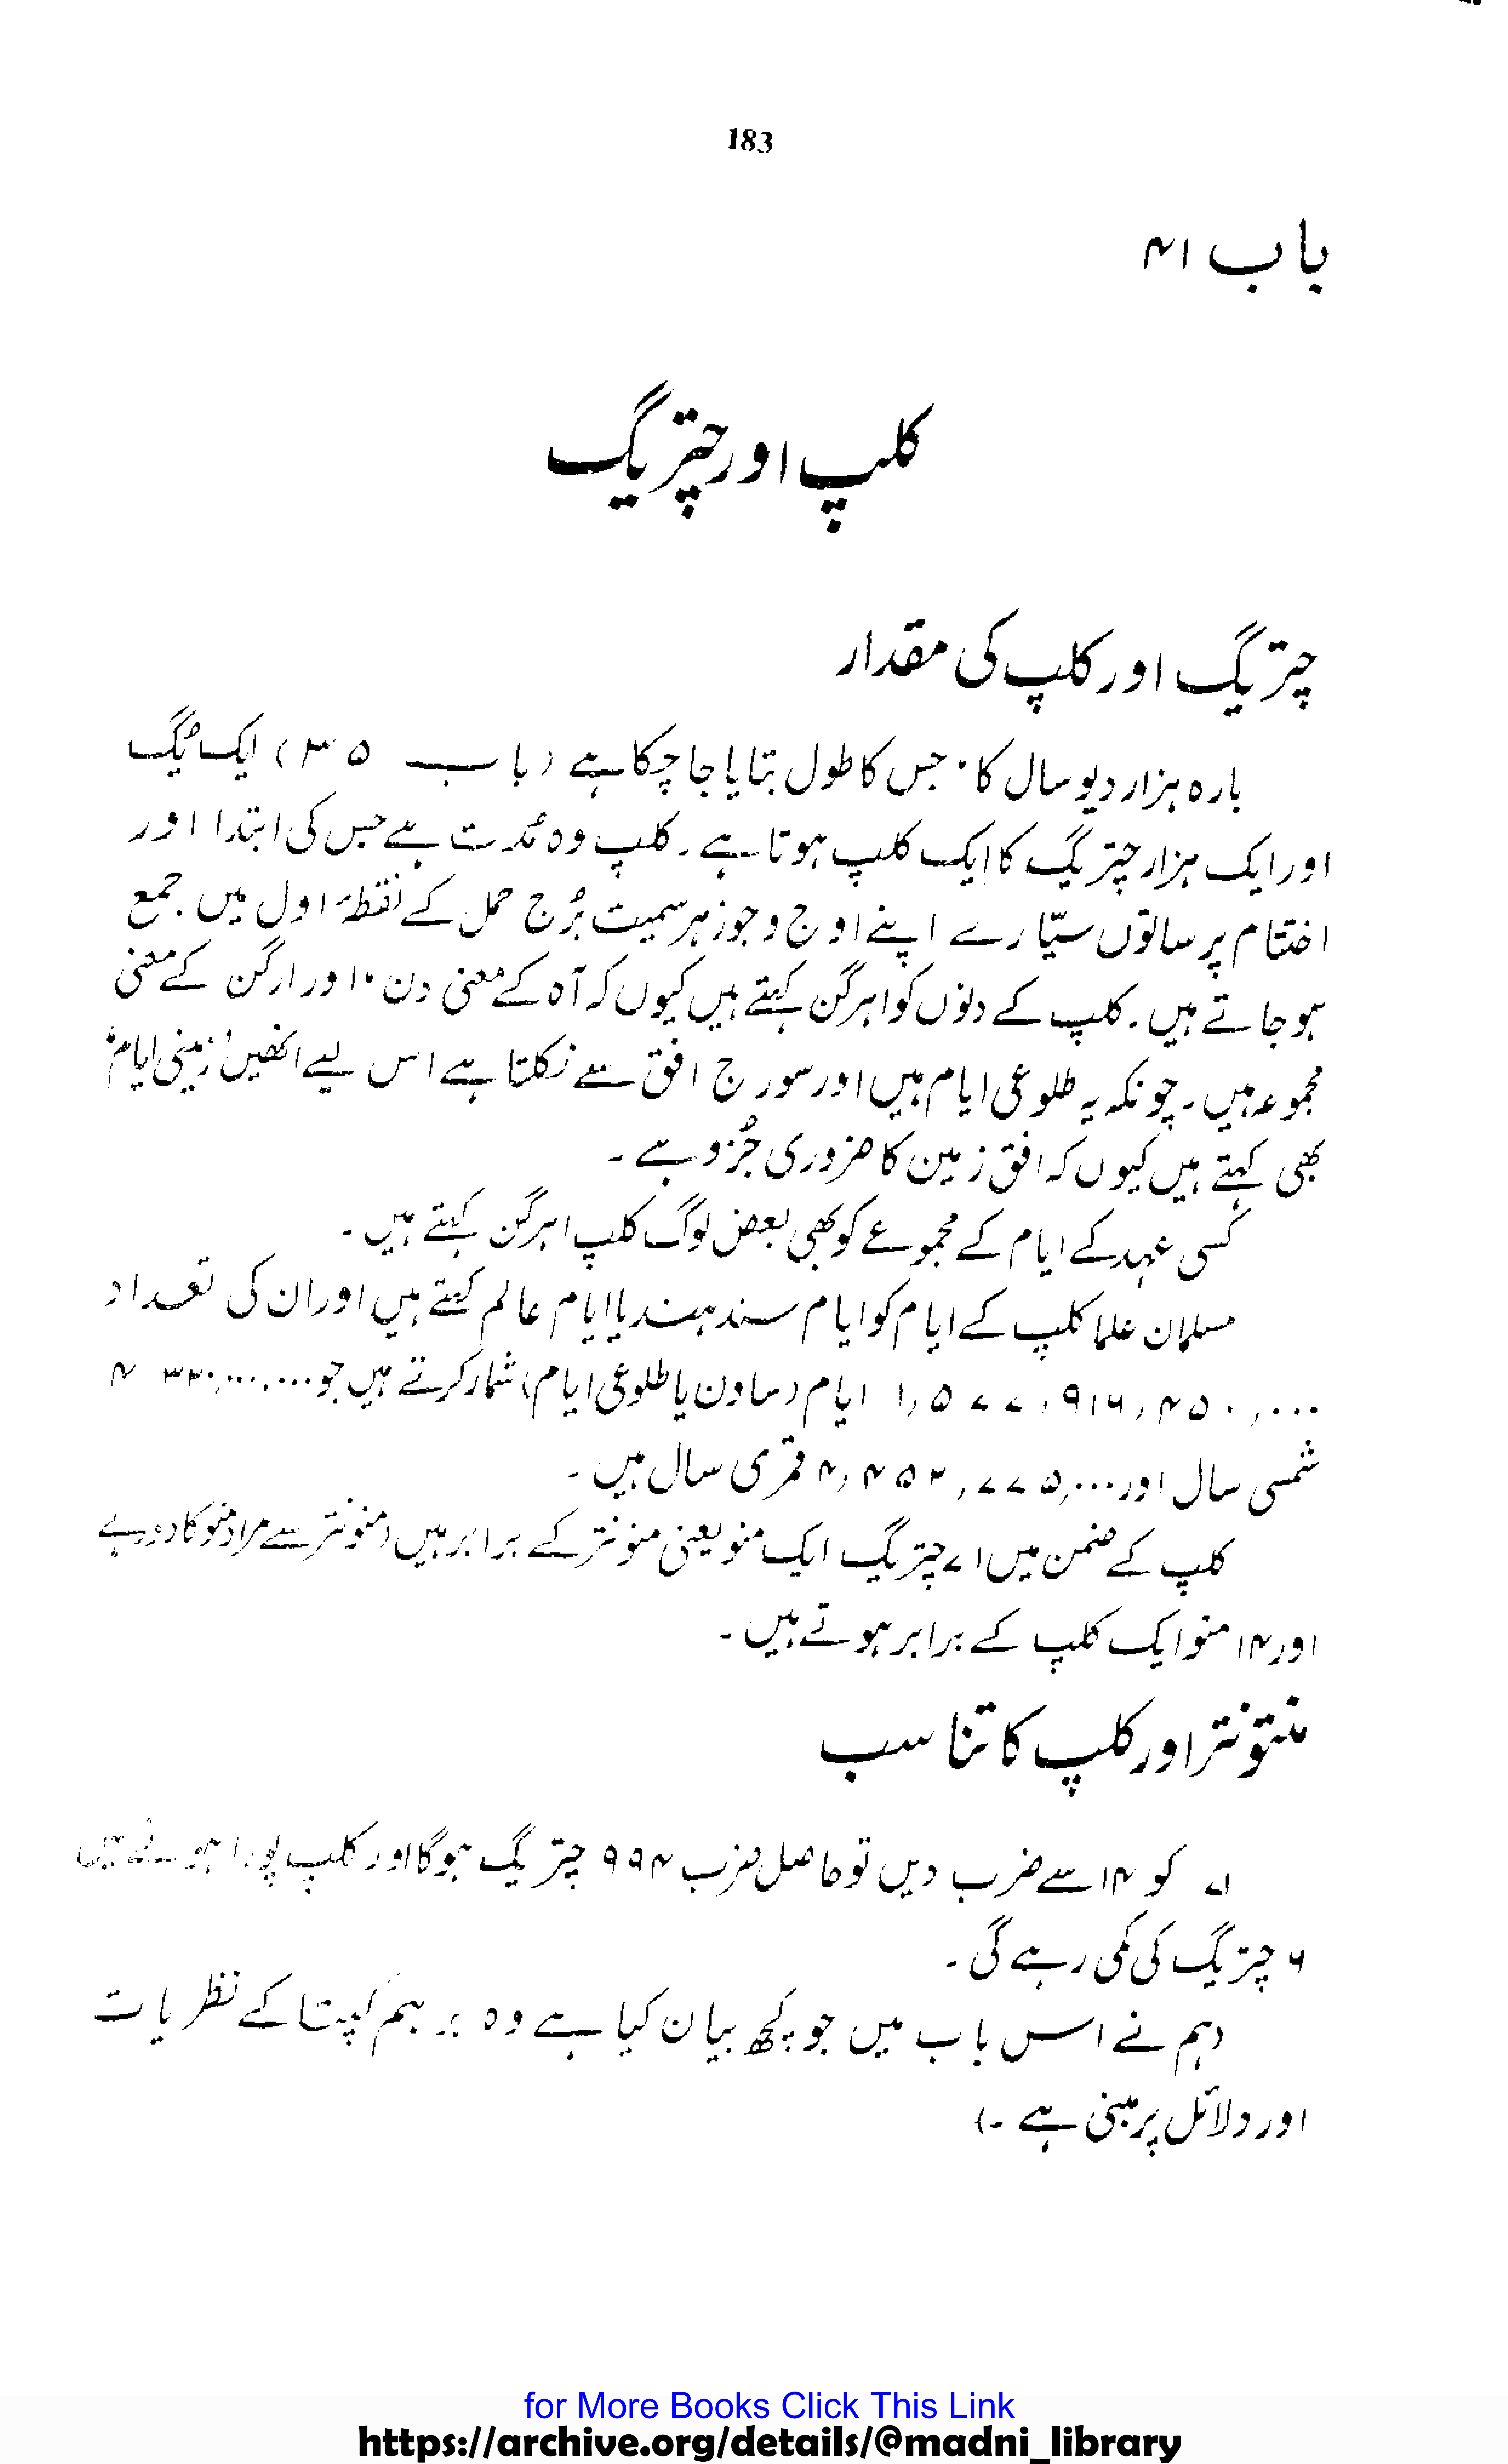 183
باب ۴۱
کلپ اور چتریگ
چتریگ اور کلپ کی مقدار
بارہ ہزار دیو سال کا، جس کا طول بتایا جا چکا ہے (باب ۳۵) ایک یُگ
اور ایک ہزار چتریگ کا ایک کلپ ہوتا ہے۔ کلپ وہ مُدت ہے جس کی ابتدا اور
اختتام پر ساتوں سیّارے اپنے اوج و جوزہر سمیت بُرج حمل کے نقطۂ اول میں جمع
ہو جاتے ہیں۔ کلپ کے دنوں کو اہرگن کہتے ہیں کیوں کہ آہ کے معنی دن، اور ارگن کے معنی
مجموعہ ہیں۔ چونکہ یہ طلوعی ایام ہیں اور سورج افق سے نکلتا ہے اس لیے انھیں 'زمینی ایام'
بھی کہتے ہیں کیوں کہ افق زمین کا ضروری جُزو ہے۔
کسی عہد کے ایام کے مجموعے کو بھی بعض لوگ کلپ اہرگن کہتے ہیں۔
مسلمان علما کلپ کے ایام کو ایام سندہند یا ایام عالم کہتے ہیں اور ان کی تعداد
۱,۵۷۷,۹۱۶,۴۵۰,۰۰۰ ایام (ساون یا طلوعی ایام) شمار کرتے ہیں جو ۴۳۲۰,۰۰۰,۰۰۰
شمسی سال اور ۴,۴۵۲,۷۷۵,۰۰۰ قمری سال ہیں۔
کلپ کے ضمن میں ۷۱ چتریگ ایک منو یعنی منونتر کے برابر ہیں (منونتر سے مراد منو کا دور ہے
اور ۱۴ منو ایک کلپ کے برابر ہوتے ہیں۔
منتونتر اور کلپ کا تناسب
۷۱ کو ۱۴ سے ضرب دیں تو حاصل ضرب ۹۹۴ چتریگ ہوگا اور کلپ پورا ہونے میں
۶ چتریگ کی کمی رہے گی۔
(ہم نے اس باب میں جو کچھ بیان کیا ہے وہ برہم گپتا کے نظریات
اور دلائل پر مبنی ہے۔)
for More Books Click This Link
https://archive.org/details/@madni_library